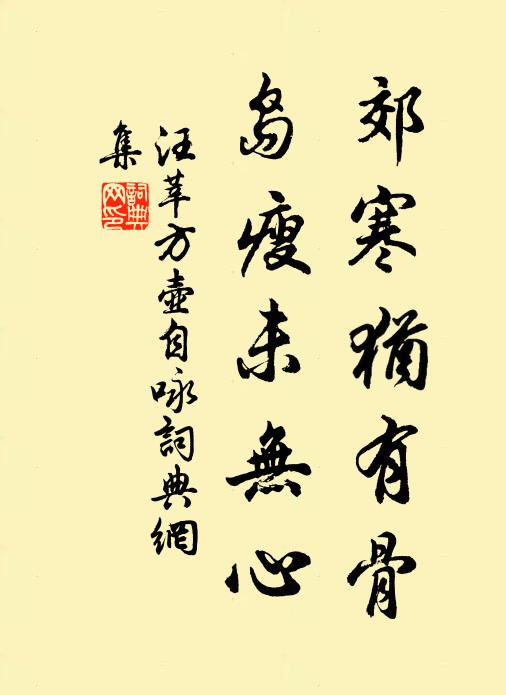 郊寒猶有骨
島瘦未無心
汪莘方壺自咏詞典網
集
詞典網印